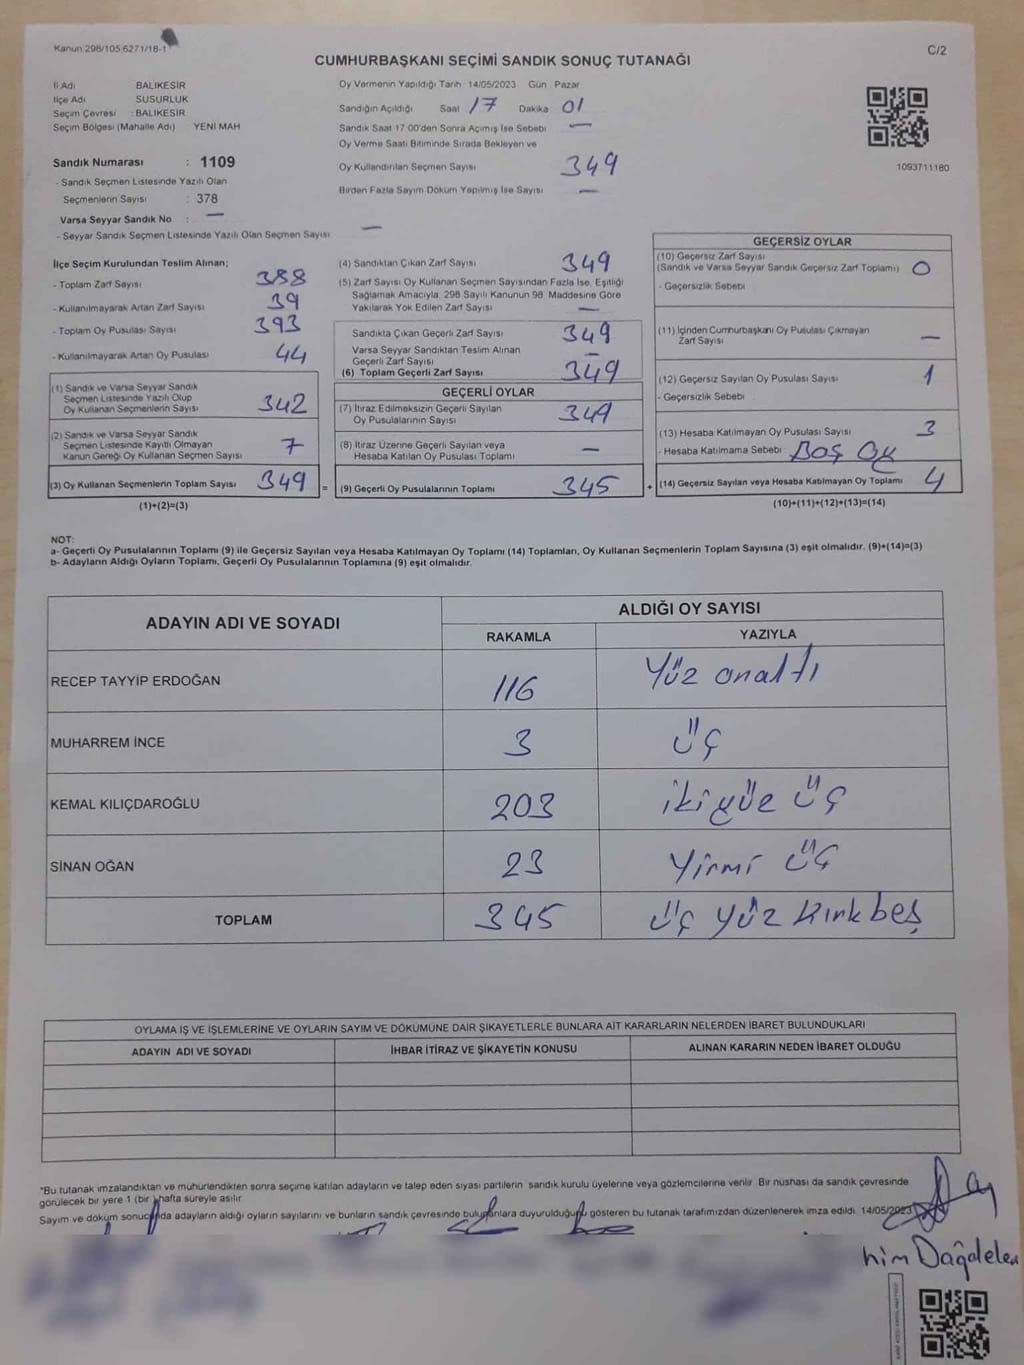 Kanun:298/105.6271/18-1
C/2
CUMHURBAŞKANI SEÇİMİ SANDIK SONUÇ TUTANAĞI
İl Adı BALIKESİR
İlçe Adı SUSURLUK
Seçim Çevresi : BALIKESİR
Seçim Bölgesi (Mahalle Adı) YENİ MAH
Sandık Numarası : 1109
- Sandık Seçmen Listesinde Yazılı Olan
Seçmenlerin Sayısı : 378
Varsa Seyyar Sandık No : —
- Seyyar Sandık Seçmen Listesinde Yazılı Olan Seçmen Sayısı —
Oy Vermenin Yapıldığı Tarih 14/05/2023 Gün Pazar
Sandığın Açıldığı Saat 17 Dakika 01
Sandık Saat 17.00'den Sonra Açımış İse Sebebi —
Oy Verme Saati Bitiminde Sırada Bekleyen ve
Oy Kullandırılan Seçmen Sayısı 349
Birden Fazla Sayım Döküm Yapılmış İse Sayısı —
1093711180
İlçe Seçim Kurulundan Teslim Alınan;
- Toplam Zarf Sayısı 388
- Kullanılmayarak Artan Zarf Sayısı 39
- Toplam Oy Pusulası Sayısı 393
- Kullanılmayarak Artan Oy Pusulası 44
(1) Sandık ve Varsa Seyyar Sandık
Seçmen Listesinde Yazılı Olup
Oy Kullanan Seçmenlerin Sayısı 342
(2) Sandık ve Varsa Seyyar Sandık
Seçmen Listesinde Kayıtlı Olmayan
Kanun Gereği Oy Kullanan Seçmen Sayısı 7
(3) Oy Kullanan Seçmenlerin Toplam Sayısı 349 =
(1)+(2)=(3)
(4) Sandıktan Çıkan Zarf Sayısı 349
(5) Zarf Sayısı Oy Kullanan Seçmen Sayısından Fazla İse, Eşitliği
Sağlamak Amacıyla, 298 Sayılı Kanunun 98. Maddesine Göre
Yakılarak Yok Edilen Zarf Sayısı —
Sandıkta Çıkan Geçerli Zarf Sayısı 349
Varsa Seyyar Sandıktan Teslim Alınan
Geçerli Zarf Sayısı —
(6) Toplam Geçerli Zarf Sayısı 349
GEÇERLİ OYLAR
(7) İtiraz Edilmeksizin Geçerli Sayılan
Oy Pusulalarının Sayısı 349
(8) İtiraz Üzerine Geçerli Sayılan veya
Hesaba Katılan Oy Pusulası Toplamı —
(9) Geçerli Oy Pusulalarının Toplamı 345 +
GEÇERSİZ OYLAR
(10) Geçersiz Zarf Sayısı
(Sandık ve Varsa Seyyar Sandık Geçersiz Zarf Toplamı) 0
- Geçersizlik Sebebi
(11) İçinden Cumhurbaşkanı Oy Pusulası Çıkmayan
Zarf Sayısı —
(12) Geçersiz Sayılan Oy Pusulası Sayısı 1
- Geçersizlik Sebebi
(13) Hesaba Katılmayan Oy Pusulası Sayısı 3
- Hesaba Katılmama Sebebi Boş Oy
(14) Geçersiz Sayılan veya Hesaba Katılmayan Oy Toplamı 4
(10)+(11)+(12)+(13)=(14)
NOT:
a- Geçerli Oy Pusulalarının Toplamı (9) ile Geçersiz Sayılan veya Hesaba Katılmayan Oy Toplamı (14) Toplamları, Oy Kullanan Seçmenlerin Toplam Sayısına (3) eşit olmalıdır. (9)+(14)=(3)
b- Adayların Aldığı Oyların Toplamı, Geçerli Oy Pusulalarının Toplamına (9) eşit olmalıdır.
ADAYIN ADI VE SOYADI ALDIĞI OY SAYISI
RAKAMLA YAZIYLA
RECEP TAYYİP ERDOĞAN 116 Yüz onaltı
MUHARREM İNCE 3 üç
KEMAL KILIÇDAROĞLU 203 ikiyüz üç
SİNAN OĞAN 23 Yirmi üç
TOPLAM 345 üç yüz kırkbeş
OYLAMA İŞ VE İŞLEMLERİNE VE OYLARIN SAYIM VE DÖKÜMÜNE DAİR ŞİKAYETLERLE BUNLARA AİT KARARLARIN NELERDEN İBARET BULUNDUKLARI
ADAYIN ADI VE SOYADI İHBAR İTİRAZ VE ŞİKAYETİN KONUSU ALINAN KARARIN NEDEN İBARET OLDUĞU
*Bu tutanak imzalandıktan ve mühürlendikten sonra seçime katılan adayların ve talep eden siyasi partilerin sandık kurulu üyelerine veya gözlemcilerine verilir. Bir nüshası da sandık çevresinde
görülecek bir yere 1 (bir) hafta süreyle asılır.
Sayım ve döküm sonucunda adayların aldığı oyların sayılarını ve bunların sandık çevresinde bulunanlara duyurulduğunu gösteren bu tutanak tarafımızdan düzenlenerek imza edildi. 14/05/2023
him Dağdelen